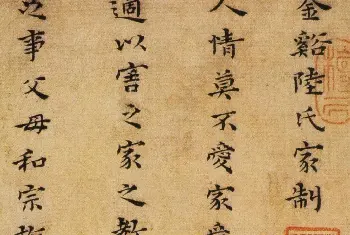 金谿陸氏家制
人情莫不愛家
適以害之家之
之事父母和宗族